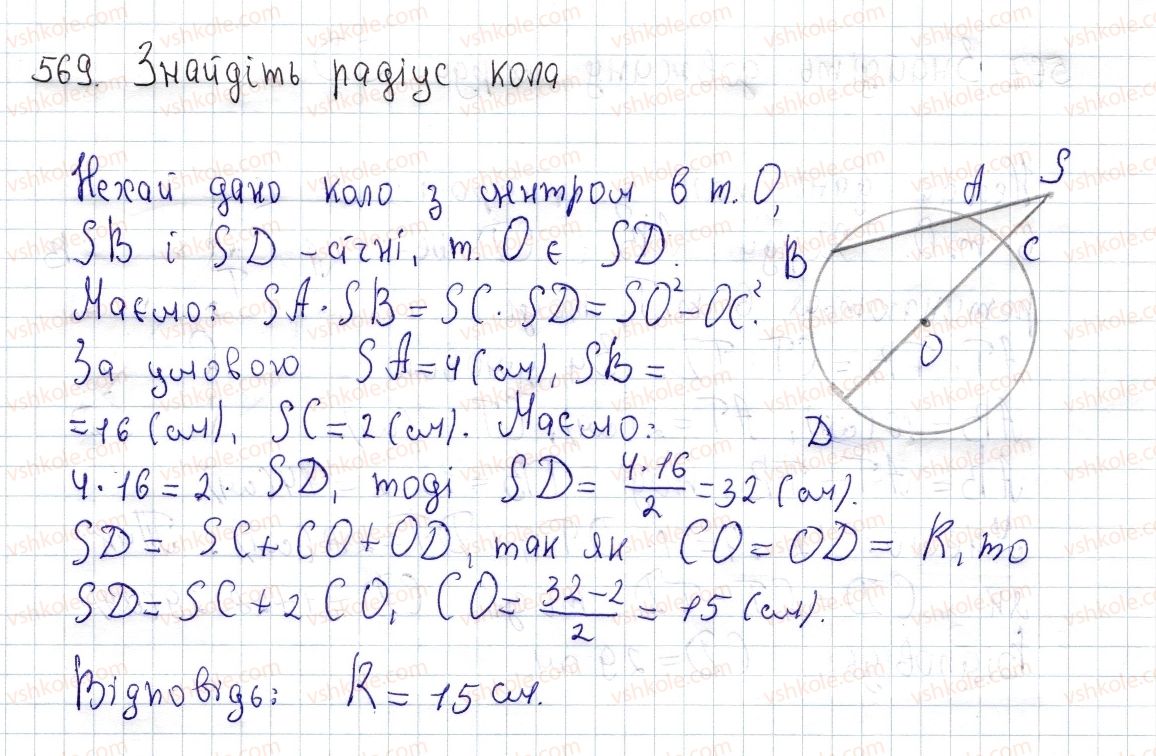 569. Знайдіть радіус кола
Нехай дано коло з центром в т. О,
SB і SD – січні, т. О є SD.
Маємо: SA · SB = SC · SD = SO² – OC².
За умовою SA = 4 (см), SB =
= 16 (см), SC = 2 (см). Маємо:
4 · 16 = 2 · SD, тоді SD = 4·16/2 = 32 (см).
SD = SC + CO + OD, так як CO = OD = R, то
SD = SC + 2 CO, CO = 32–2/2 = 15 (см).
Відповідь: R = 15 см.
S
A
B
C
O
D
vshkole.com